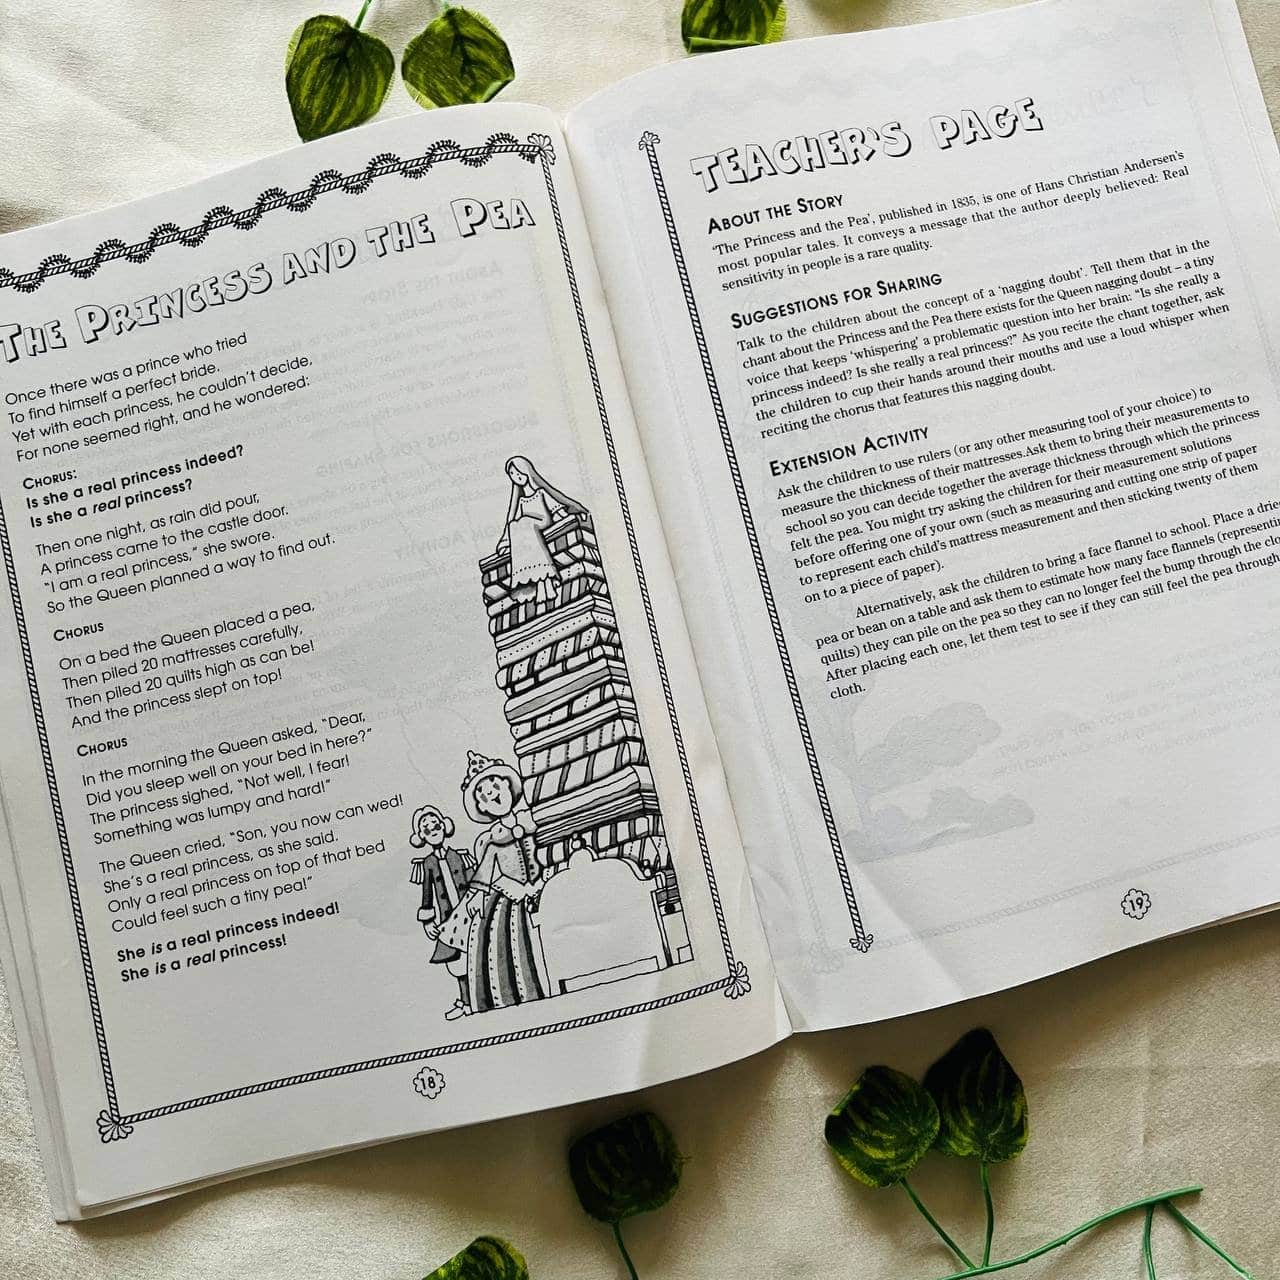 THE PRINCESS AND THE PEA
Once there was a prince who tried
To find himself a perfect bride.
Yet with each princess, he couldn't decide,
For none seemed right, and he wondered:
CHORUS:
Is she a real princess indeed?
Is she a real princess?
Then one night, as rain did pour,
A princess came to the castle door.
"I am a real princess," she swore.
So the Queen planned a way to find out.
CHORUS
On a bed the Queen placed a pea,
Then piled 20 mattresses carefully,
Then piled 20 quilts high as can be!
And the princess slept on top!
CHORUS
In the morning the Queen asked, "Dear,
Did you sleep well on your bed in here?"
The princess sighed, "Not well, I fear!
Something was lumpy and hard!"
The Queen cried, "Son, you now can wed!
She's a real princess, as she said.
Only a real princess on top of that bed
Could feel such a tiny pea!"
She is a real princess indeed!
She is a real princess!
18
TEACHER'S PAGE
ABOUT THE STORY
'The Princess and the Pea', published in 1835, is one of Hans Christian Andersen's
most popular tales. It conveys a message that the author deeply believed: Real
sensitivity in people is a rare quality.
SUGGESTIONS FOR SHARING
Talk to the children about the concept of a 'nagging doubt'. Tell them that in the
chant about the Princess and the Pea there exists for the Queen nagging doubt – a tiny
voice that keeps 'whispering' a problematic question into her brain: "Is she really a
princess indeed? Is she really a real princess?" As you recite the chant together, ask
the children to cup their hands around their mouths and use a loud whisper when
reciting the chorus that features this nagging doubt.
EXTENSION ACTIVITY
Ask the children to use rulers (or any other measuring tool of your choice) to
measure the thickness of their mattresses.Ask them to bring their measurements to
school so you can decide together the average thickness through which the princess
felt the pea. You might try asking the children for their measurement solutions
before offering one of your own (such as measuring and cutting one strip of paper
to represent each child's mattress measurement and then sticking twenty of them
on to a piece of paper).
Alternatively, ask the children to bring a face flannel to school. Place a
pea or bean on a table and ask them to estimate how many face flannels
quilts) they can pile on the pea so they can no longer feel the bump through the
After placing each one, let them test to see if they can still feel the pea through
cloth.
19